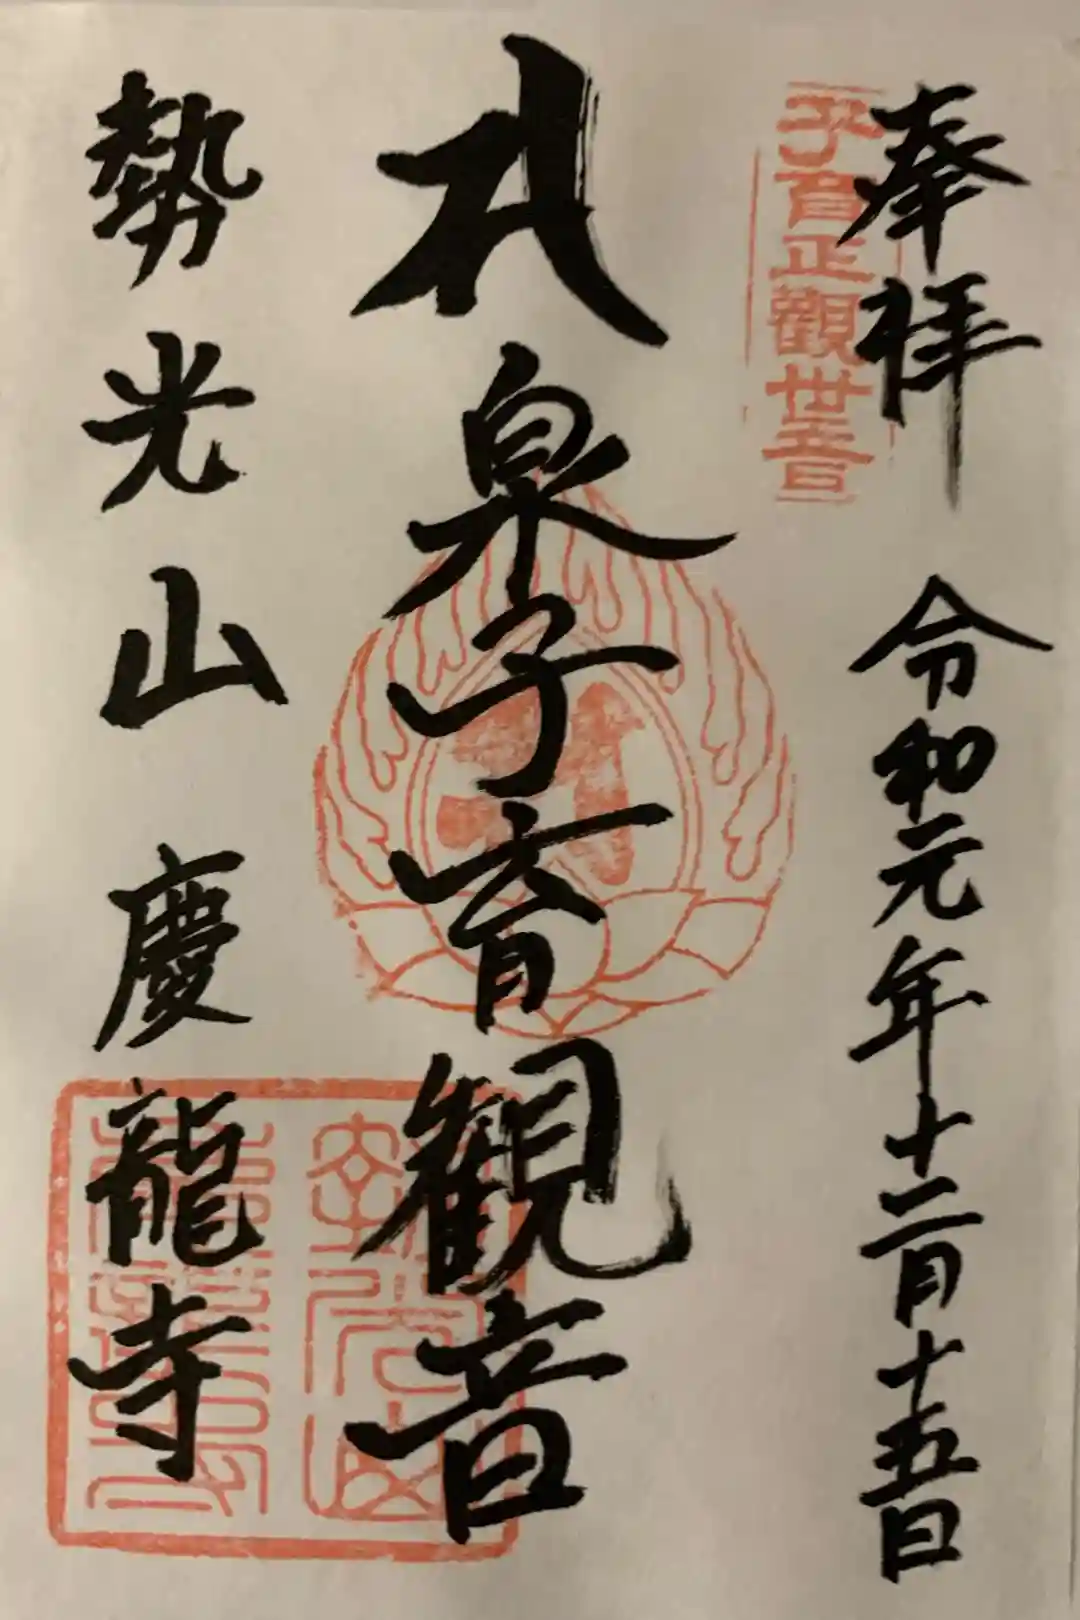 奉拝 令和元年十二月十五日
子育正觀世音
泉子育観音
勢光山 慶龍寺